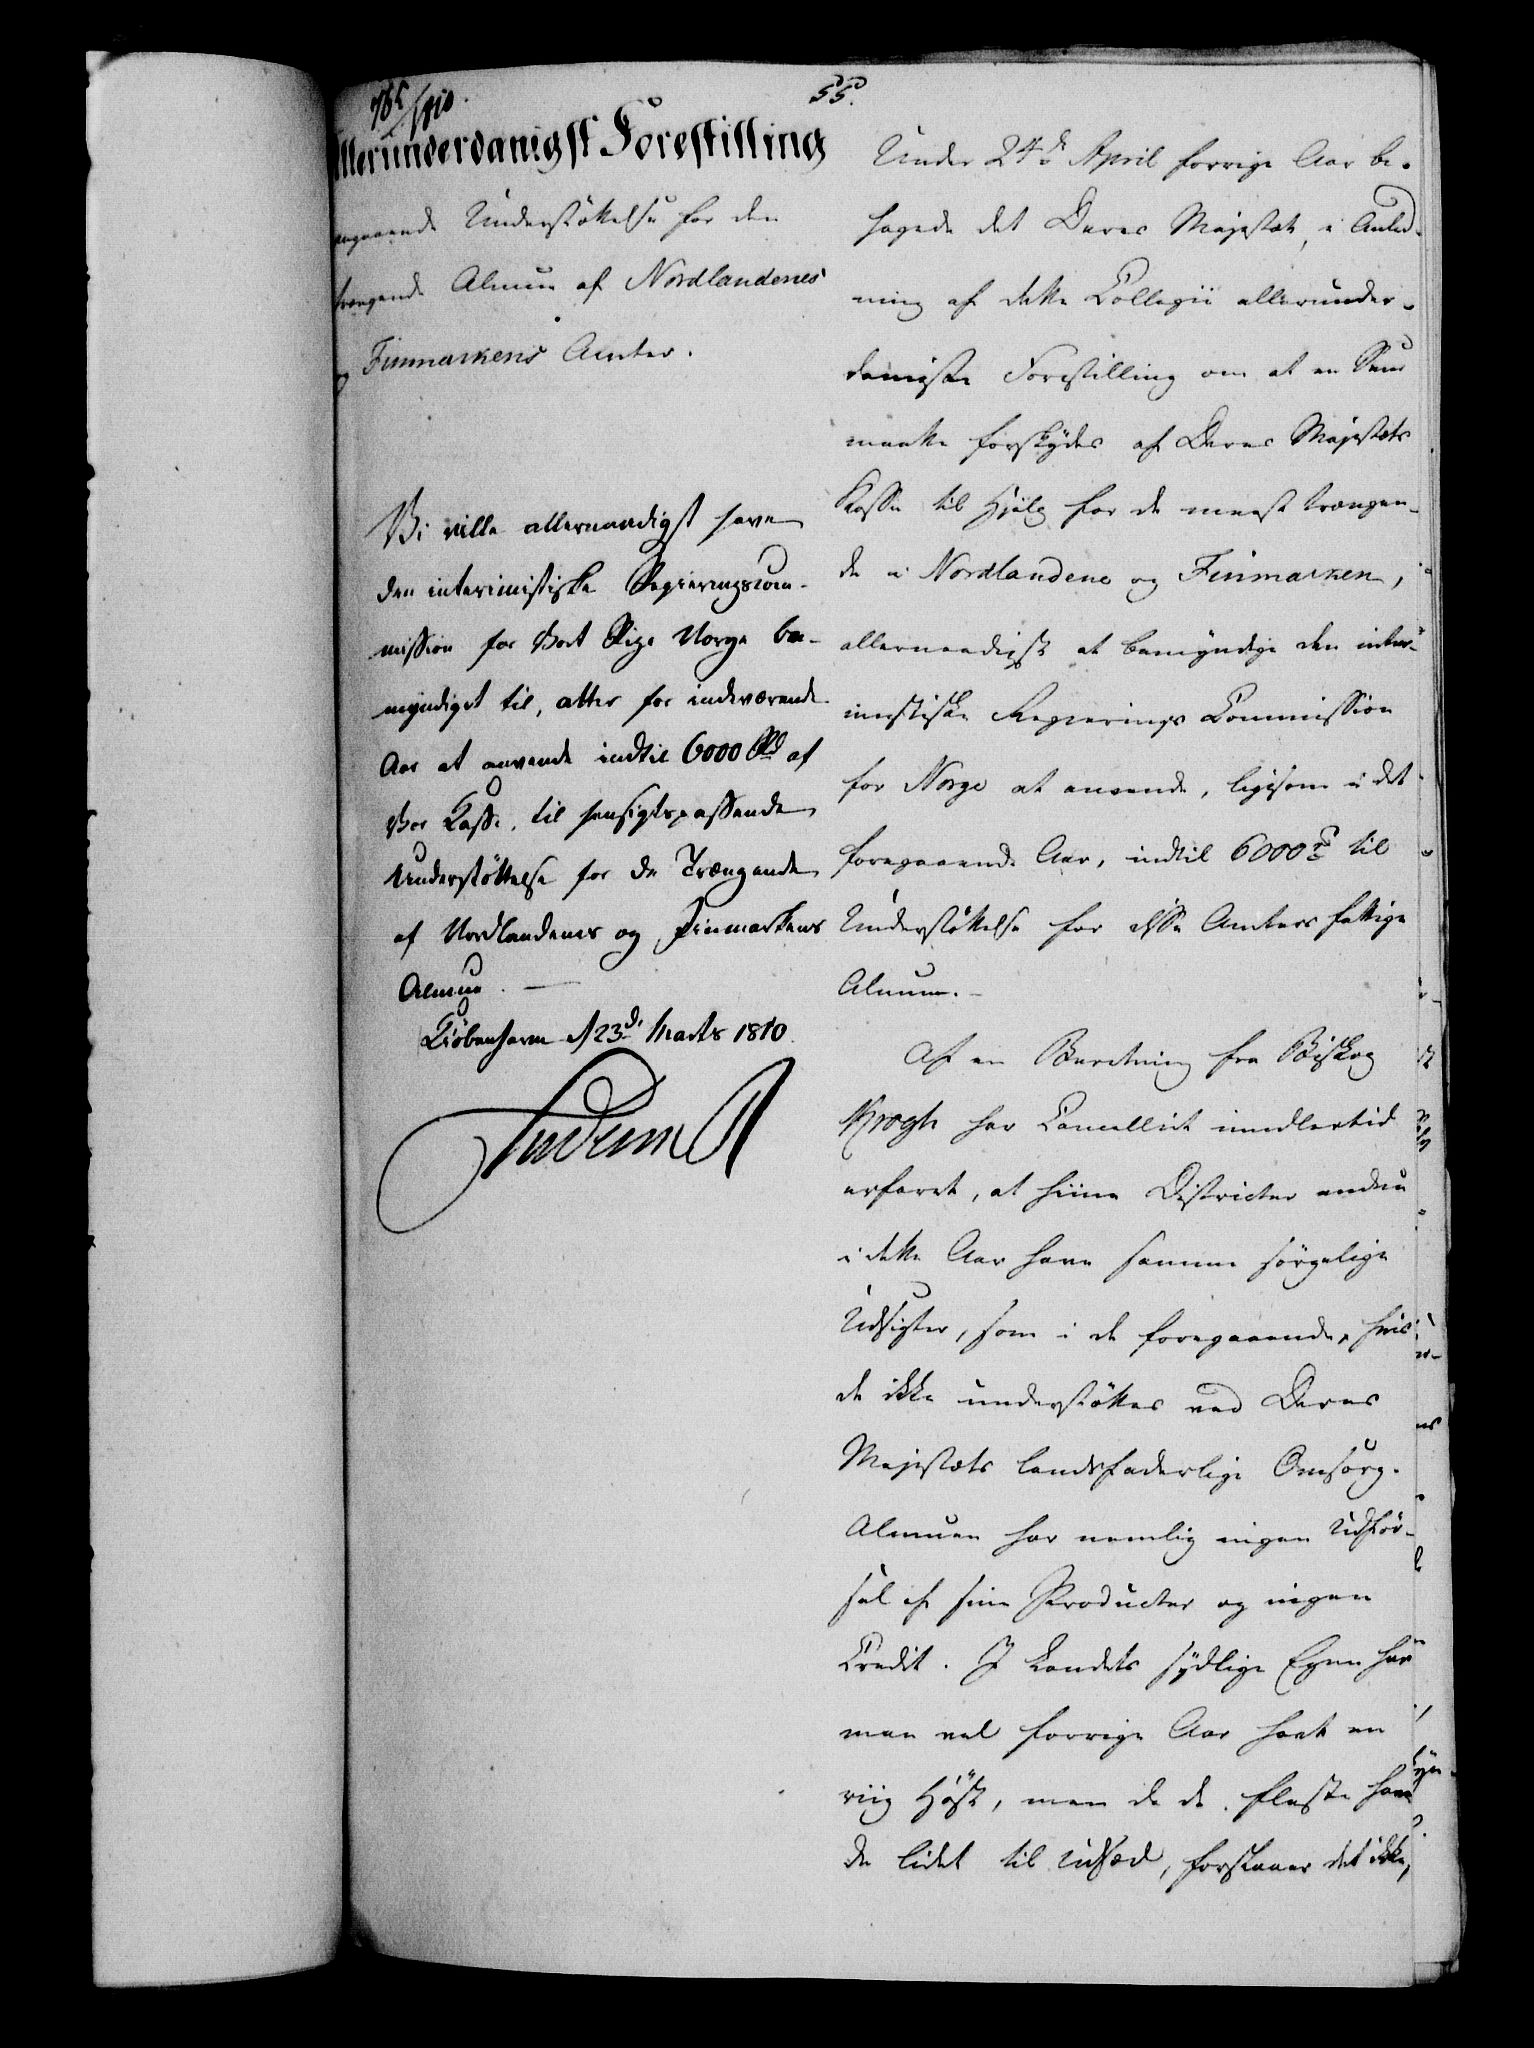 785/1810.
55.
Allerunderdanigst Forestilling
angaaende Understöttelse for den
trængende Almue af Nordlandenes
og Finmarkens Amter.
Vi ville allernaadigst have
den interimistiske Regieringscom-
mission for Vort Rige Norge be-
myndiget til, atter for indeværende
Aar at anvende indtil 6000 Rd af
Vor Kasse, til hensigtspassende
Understöttelse for de Trængende
af Nordlandenes og Finmarkens
Almue. —
Kiöbenhavn d 23d Marts 1810.
Frederik R
Under 24de April forrige Aar be-
hagede det Deres Majestæt, i Anled-
ning af dette Collegii allerunder-
danigste Forestilling om at en Sum
maatte forskydes af Deres Majestæts
Kasse til Hjelp for de meest trængen-
de i Nordlandene og Finmarken,
allernaadigst at bemyndige den inter-
imistiske Regierings Commission
for Norge at anvende, ligesom i det
foregaaende Aar, indtil 6000 rd til
Understöttelse for disse Amters fattige
Almue. –
Af en Beretning fra Biskop
Krogh har Cancelliet imidlertid
erfaret, at hiine Districter endnu
i dette Aar have samme sörgelige
Udsigter, som i de foregaaende, hvis
de ikke understöttes ved Deres
Majestæts landsfaderlige Omsorg.
Almuen har nemlig ingen Udför-
sel af sine Producter og ingen
Credit. I Landets sydlige Egne har
man vel forrige Aar havt en
riig Höst, men da de fleste hav-
de lidet til Udsæd, forslaaer det ikke,